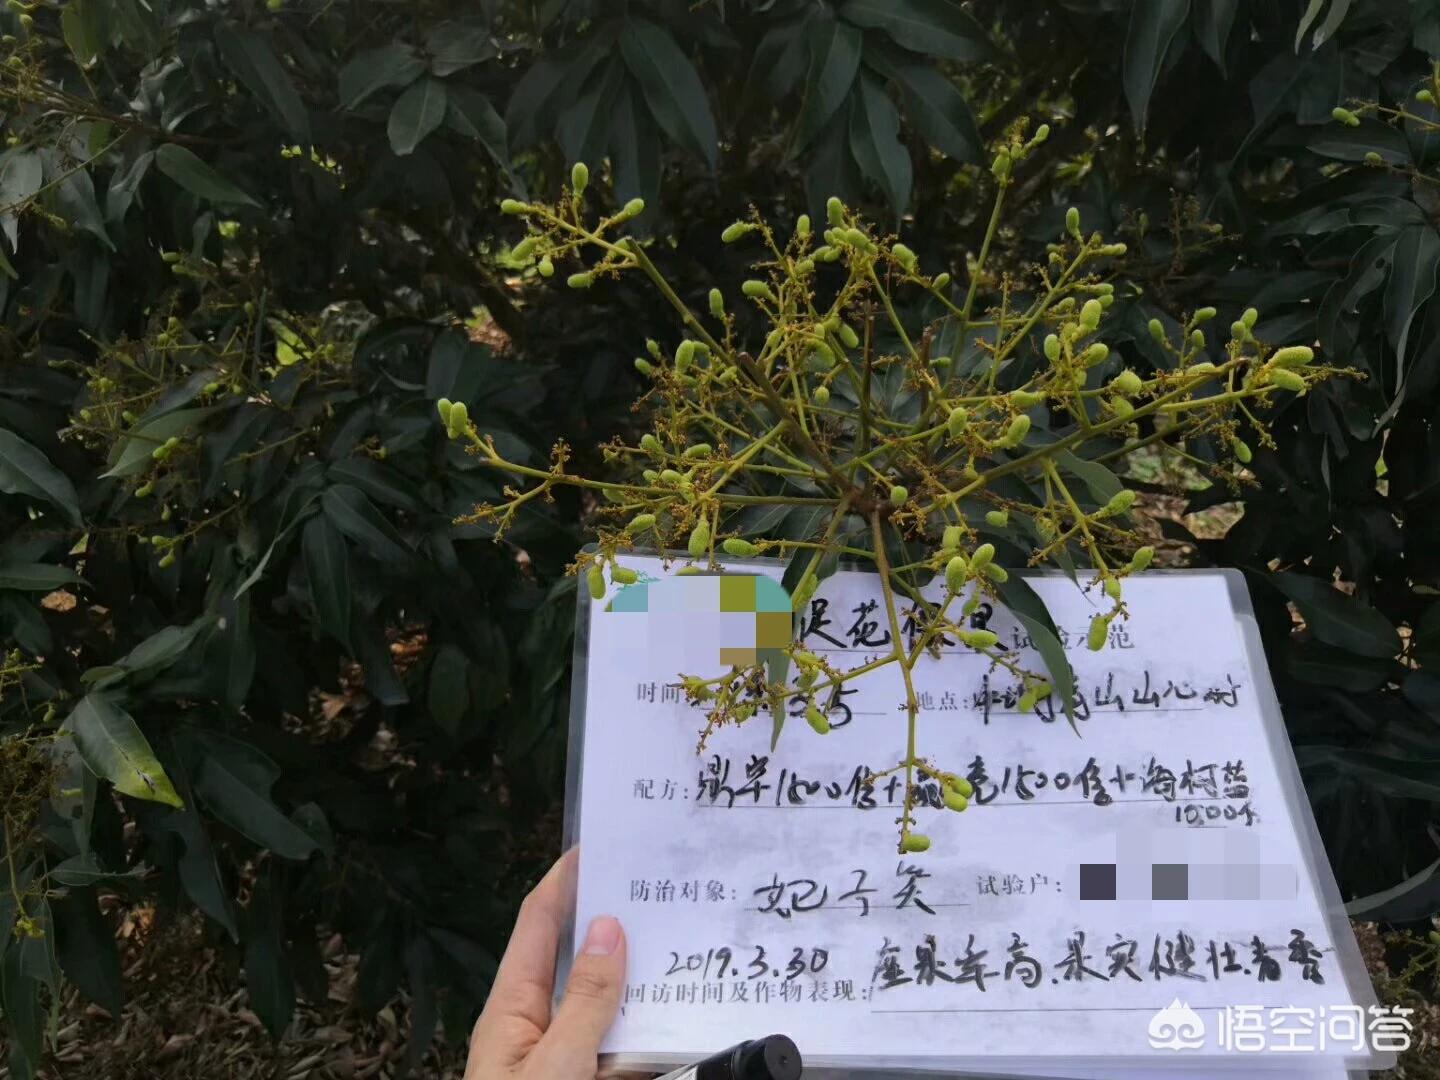 促花保果试验示范
时间: 3.5 地点: 山心村
配方: 1500倍+ 1500倍+海柯蓝
10000倍
防治对象: 妃子笑 试验户:
2019.3.30 座果率高.果实健壮.青香
回访时间及作物表现:
悟空问答